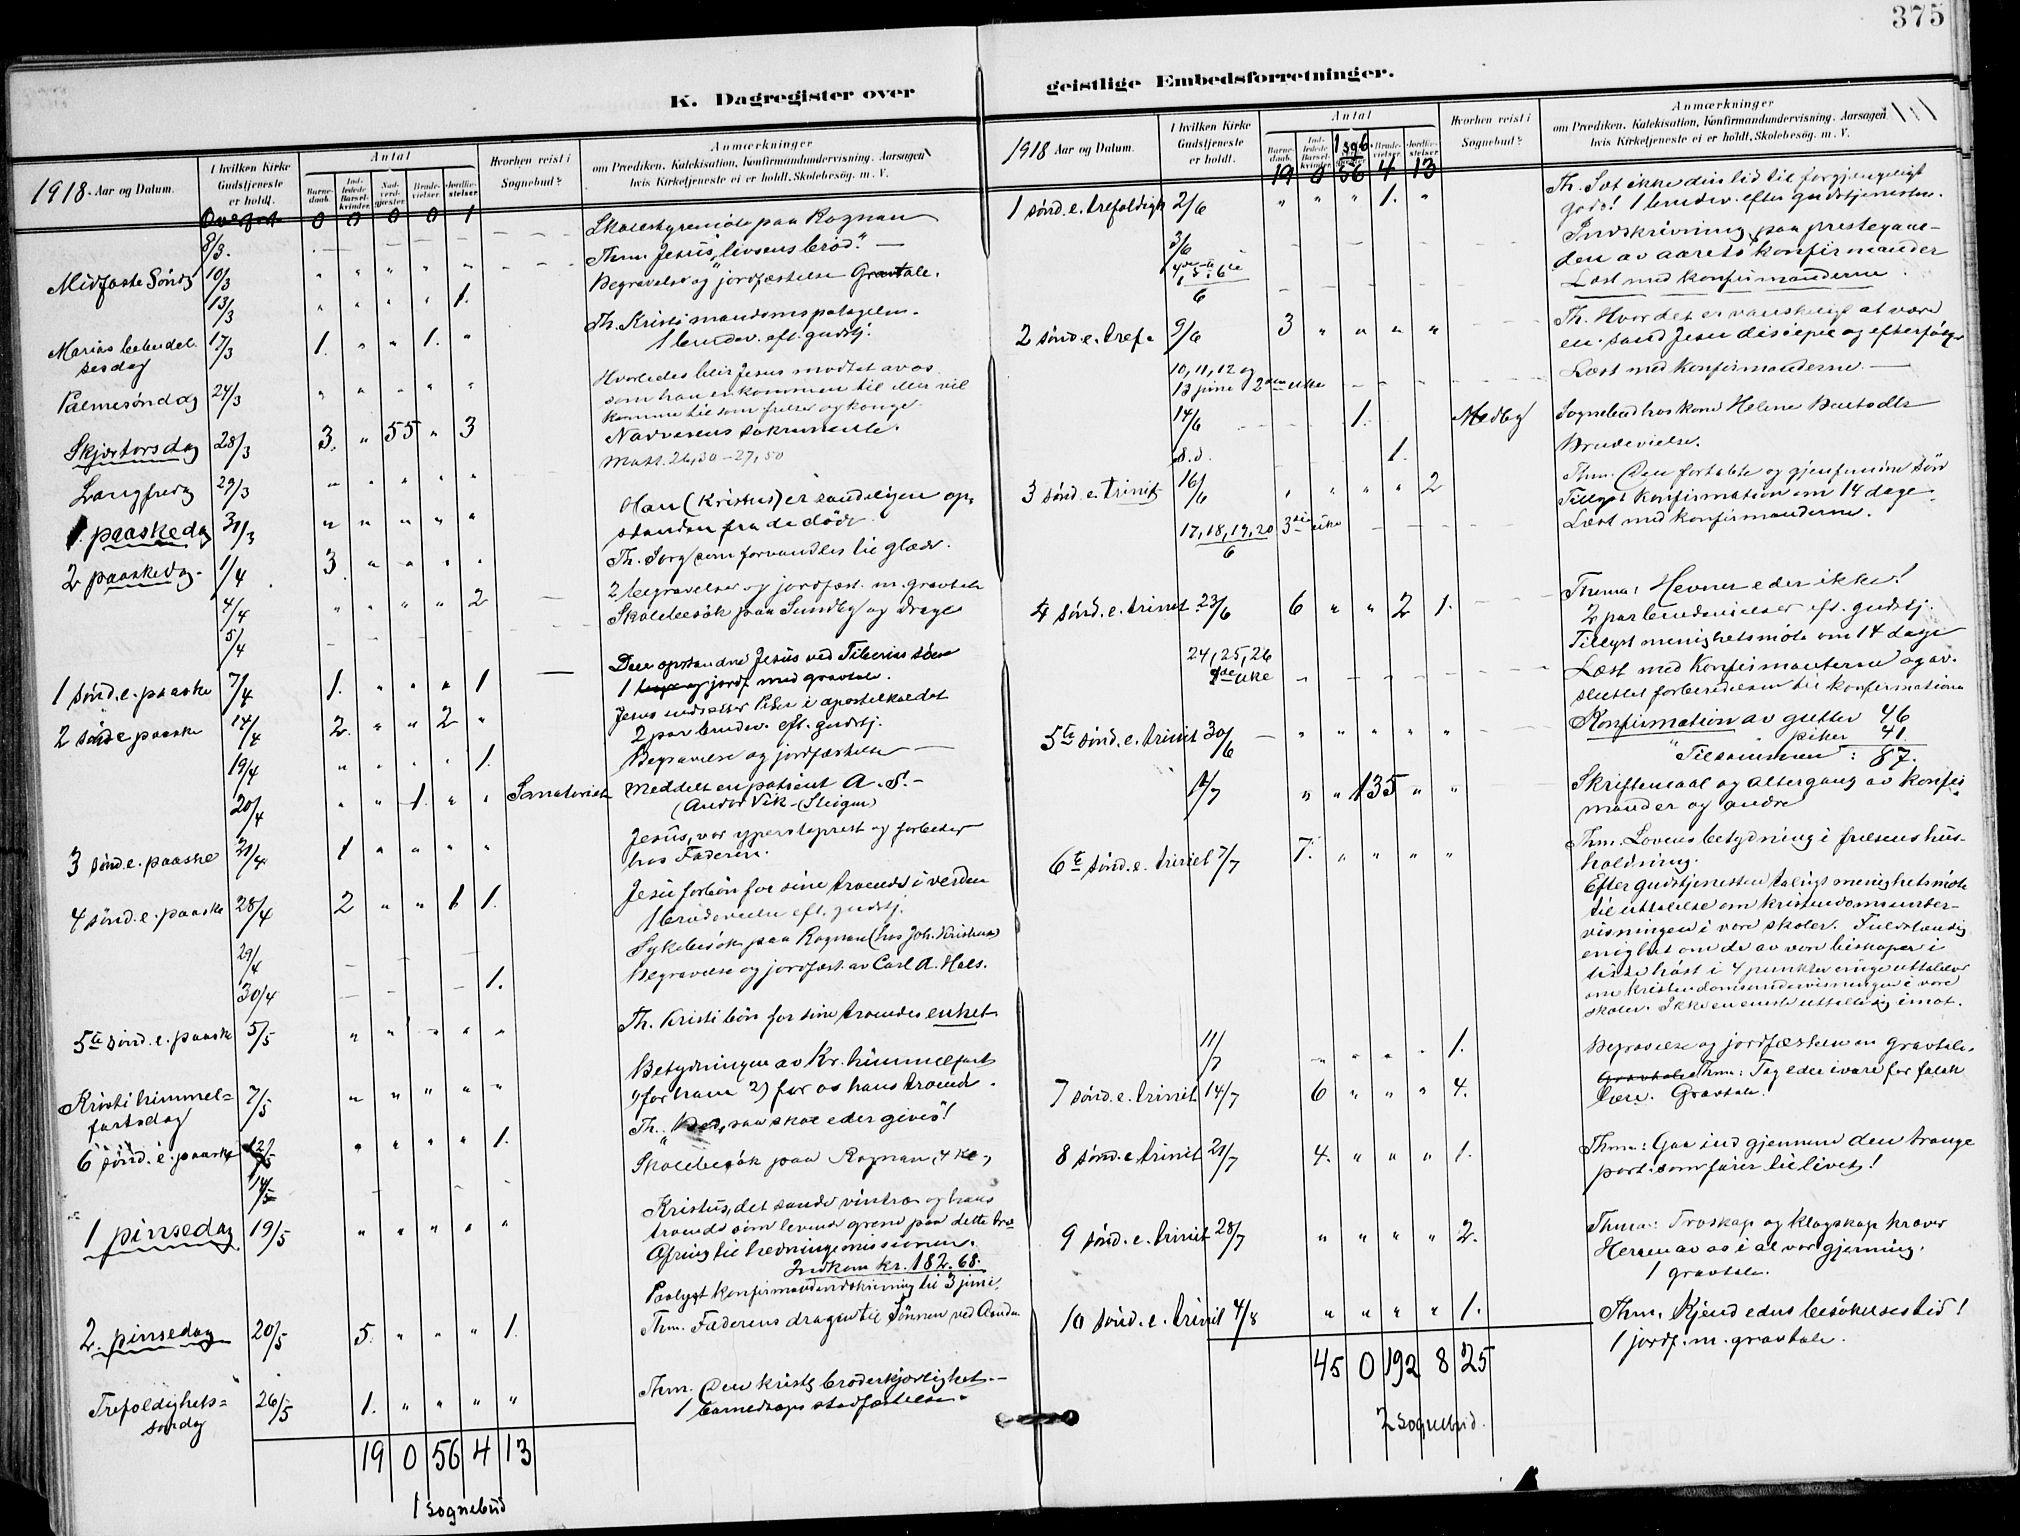 375
K. Dagregister over
1918. Aar og Datum.
I hvilken Kirke Gudstjeneste er holdt.
Antal
Barnedaab. Indledede Barselkvinder. Nadverdgjæster. Brudevielser. Jordfæstelser
Hvorhen reist i Sognebud?
Anmærkninger
om Prædiken, Katekisation, Konfirmandundervisning, Aarsagen
hvis Kirketjeneste ei er holdt, Skolebesög. m. V.
Overført 0 0 0 0 1
8/3. Skolestyremöte paa Rognan
Midfaste Sönd 10/3 " " " " " Thm. Jesus, livsens bröd."
13/3 " " " " 1. Begravelse og jordfæstelse Gravtale.
Marias bebudelsesdag 17/3 1. " " 1. " Th. Kristi mandomspatagelse.
1 brudev. eft. gudstj.
Palmesöndag 24/3 " " " " " Hvorledes blir Jesus modtat av os
som han er kommen til eller vil
komme til som frelser og konge.
Skjærtorsdag 28/3 3. " 55 " 3 Nadverens sakramente.
Langfredag 29/3 " " " " " Matt. 26,30-27,50
1. paaskedag 31/3 " " " " " Han (Kristus) er sandeligen opstanden fra de döde.
2 paaskedag. 1/4 3. " " " " Th. Sorg som forvandles til glæde.
4/4 " " " " 2 2 begravelser og jordfæst. m. gravtale
5/4 Skolebesök paa Sundby og Drage
1 sönd. e. paaske 7/4 1. " " " 1 Den opstandne Jesus ved Tiberias söen
1 jordf. med gravtale.
2 sönd e paaske 14/4 2. " " 2 " Jesus indsætter Peter i apostelkaldet
2 par brudev. eft. gudstj.
19/4 " " " " 1. Begravelse og jordfæstelse
20/4 " " 1. " " Sanatoriet Meddelt en patient A. S.
(Andor Vik - Steigen)
3 sönd. e. paaske 21/4 1 " " " " Jesus, vor ypperstoprest og forbeder
hos Faderen.
4 sönd. e. paaske 28/4 2 " " 1 1. Jesu forbön for sine troende i verden
1 brudevielse eft. gudstj.
29/4 Sykebesök paa Rognan (hos Joh. Kristians)
30/4 1. Begravelse og jordfæst. av Carl A. Hals.
5te sönd. e. paaske 5/5 " " " " " Th. Kristi bön for sine troendes enhet
Kristi himmelfartsdag 7/5 " " " " " Betydningen av Kr. himmelfart
1) for ham 2) for os hans troende.
6 sönd. e. paaske 12/5 " " " " 1. Th. "Bed, saa skal eder gives"!
14/5 Skolebesök paa Rognan, 4 kl.,
1 pinsedag 19/5 " " " " " Kristus, det sande vintræ og hans
troende som levende grene paa dette træ
Ofring til hedningemissionen.
Indkom kr. 182.68.
Paalyst konfirmandindskrivning til 3 juni.
2. pinsedag 20/5 5. " " " 1. Thm. Faderens dragen til Sönnen ved Aanden
Trefoldighetssöndag 26/5 1. " " " " Thm. Den kristl. broderkjærlighet.
1 barnedaaps stadfæstelse.
19 0 56 4 13
1 sognebud
geistlige Embedsforretninger.
1918 Aar og Datum.
I hvilken Kirke Gudstjeneste er holdt.
Antal
Barnedaab. Indledede Barselkvinder. Brudevielser. Jordfæstelser
1 sgb
Hvorhen reist i Sognebud?
Anmærkninger
om Prædiken, Katekisation, Konfirmandundervisning, Aarsagen
hvis Kirketjeneste ei er holdt, Skolebesög. m. V.
19 0 56 4 13
1 sönd. e. trefoldigh 2/6 " " " 1. " Th. Sæt ikke din lid til forgjængeligt
gods! 1 brudev. efter gudstjenesten.
3/6 Indskrivning paa prestegaarden av aarets konfirmander
4de 5te 6te/6 Læst med konfirmanderne
2 sönd. e. tref. 9/6 3 " " " " Th. Hvor det er vanskelig at være
en sand Jesu discipel og efterfölger
10, 11, 12 og 13 juni 2den uke Læst med konfirmanderne.
14/6 1. Medby Sognebud hos kone Helene
s. d. 1. Brudevielse.
3 sönd. e. trinit. 16/6 " " " " 2 Thm. Den fortabte og gjenfundne sön
Tillyst konfirmation om 14 dage.
17, 18, 19, 20/6 3die uke Læst med konfirmanderne.
4 sönd. e. trinit 23/6 6 " " 2 1. Thema: Hevner eder ikke!
2 par brudevielser eft. gudstj.
Tillyst menighetsmöte om 14 dage
24, 25, 26 4de uke Læst med konfirmanterne og avsluttet forberedelsen til konfirmation
5te sönd. e. trinit 30/6 " " " " " Konfirmation av gutter 46
" piker 41.
Tilsammen: 87.
1/7 " " 135 " " Skriftemaal og altergang av konfirmander og andre
6te sönd. e. trinit 7/7 7. " " " " Thm. Lovens betydning i frelsens husholdning.
Efter gudstjenesten holdt menighetsmöte
til uttalelse om kristendomsundervisningen i vore skoler. Fuldstændig
enighet om de av vore biskoper i
siste höst i 4 punkter uttalelser
om kristendomsundervisningen i vore
skoler. Ikke en eneste uttalte sig imot.
11/7 " " " " 1. Begravelse og jordfæstelse m gravtale.
7 sönd. e. trinit. 14/7 6 " " " 4. Thm: Tag eder ivare for falsk
lære. Gravtale.
8 sönd. e trinit 21/7 4. " " " 1. Thm: Gaa ind gjennem den trange
port som förer til livet!
9 sönd. e. trinit 28/7 " " " " 2. Thma: Troskap og klogskap kræver
Herren av os i al vor gjerning.
1 gravtale.
10 sönd. e. trinit 4/8 " " " " 1. Thm. Kjend eders besökelsestid!
1 jordf. m. gravtale.
45 0 192 8 25
2 sognebud.